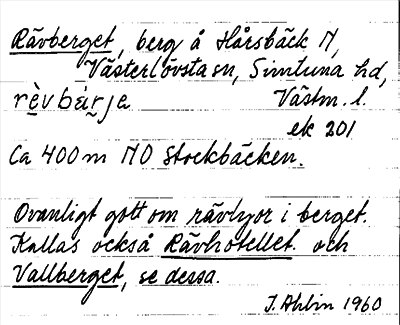 Rävberget, berg å Hårsbäck N,
Västerlövsta sn, Simtuna hd,
rèvbárje Västm. l.
ek 201
Ca 400 m NO Stockbäcken.
Ovanligt gott om rävlyor i berget.
Kallas också Rävhotellet och
Vallberget, se dessa.
J. Ahlin 1960